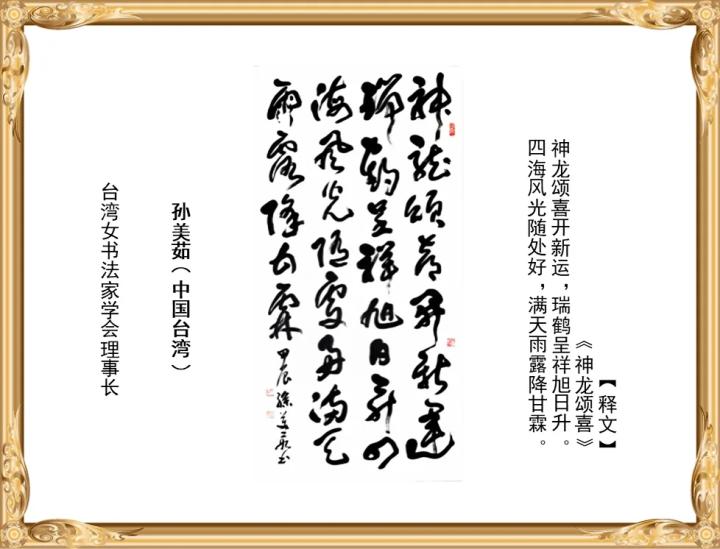 【释文】
《神龙颂喜》
神龙颂喜开新运，瑞鹤呈祥旭日升。
四海风光随处好，满天雨露降甘霖。
神龍頌喜開新運
瑞鶴呈祥旭日升四
海風光隨處好滿天
雨露降甘霖 甲辰 孫美茹书
孙美茹（中国台湾）
台湾女书法家学会理事长